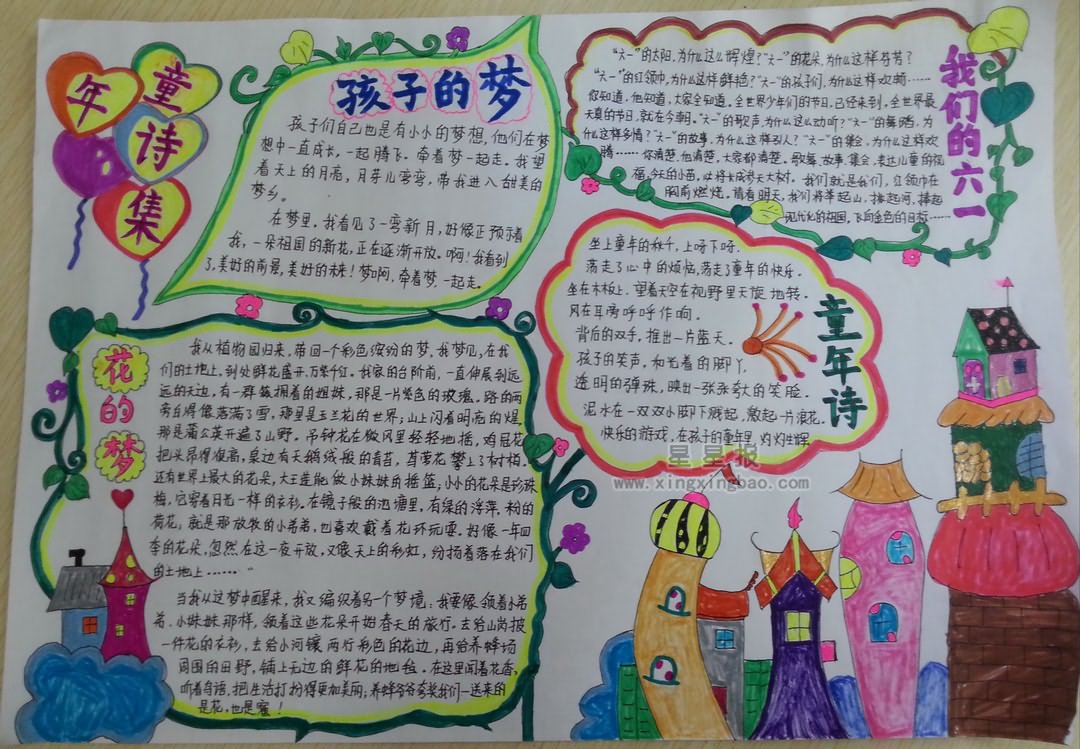 童年诗集
孩子的梦
孩子们自己也是有小小的梦想,他们在梦
想中一直成长,一起腾飞。牵着梦一起走。我望
着天上的月亮,月芽儿弯弯,带我进入甜美的
梦乡。
在梦里,我看见了一弯新月,好像正预示着
我,一朵祖国的新花,正在逐渐开放。啊!我看到
了,美好的前景,美好的未来!梦啊,牵着梦,一起走。
我们的六一
“六一”的太阳,为什么这么辉煌?“六一”的花朵,为什么这样芬芳?
“六一”的红领巾,为什么这样鲜艳?“六一”的孩子们,为什么这样欢畅……
你知道,他知道,大家全知道。全世界少年们的节日,已经来到,全世界最
大员的节日,就在今朝。“六一”的歌声,为什么这么动听?“六一”的舞蹈,为
什么这样多情?“六一”的故事,为什么这样引人?“六一”的集会,为什么这样欢
腾……你清楚,他清楚,大家都清楚。歌舞、故事、集会,表达儿童的祝
福,今天的小苗,必将长成参天大树。我们就是我们,红领巾在
胸前燃烧。瞄着明天,我们将举起山,捧起河,捧起
现代化的祖国,飞向金色的目标……
童年诗
坐上童年的秋千,上呀下呀.
荡走了心中的烦恼,荡走了童年的快乐.
坐在木板上.望着天空在视野里天旋地转.
风在耳旁呼呼作响.
背后的双手,推出一片蓝天.
孩子的笑声,和光着的脚丫,
透明的弹珠,映出一张张夸大的笑脸.
泥水在一双双小脚下溅起,激起一片浪花.
快乐的游戏,在孩子的童年里,灼灼生辉
花的梦
我从植物园归来,带回一个彩色缤纷的梦,我梦见,在我
们的土地上,到处鲜花盛开,万紫千红。我家的台阶前,一直伸展到远
远的天边,有一群簇拥着的姐妹,那是一片紫色的玫瑰。路的两
旁白得像落满了雪,哪里是玉兰花的世界;山上闪着明亮的煌,
那是蒲公英开遍了山野。吊钟花在微风里轻轻地摇,鸡冠花
把头昂得很高,桌边有天鹅绒般的青苔,茑萝花攀上了树梢。
还有世界上最大的花朵,大王莲能做小妹妹的摇篮,小小的花朵是珍珠
梅,它穿着月光一样的衣衫。在镜子般的池塘里,有绿的浮萍,粉的
荷花,就是那放牧的小弟弟,也喜欢戴着花环玩耍。好像一年四
季的花朵,忽然在这一夜开放,又像天上的彩虹,纷扬着落在我们
的土地上……”
当我从这梦中醒来,我又编织着另一个梦境:我要像领着小弟
弟、小妹妹那样,领着这些花朵开始春天的旅行。去给山岗披
一件花的衣衫,去给小河镶两行彩色的花边,再给养蜂场
周围的田野,铺上无边的鲜花的地毯。在这里闻着花香,
听着鸟语,把生活打扮得更加美丽;养蜂爷爷夸奖我们一送来的
是花,也是蜜!
星星报
www.xingxingbao.com